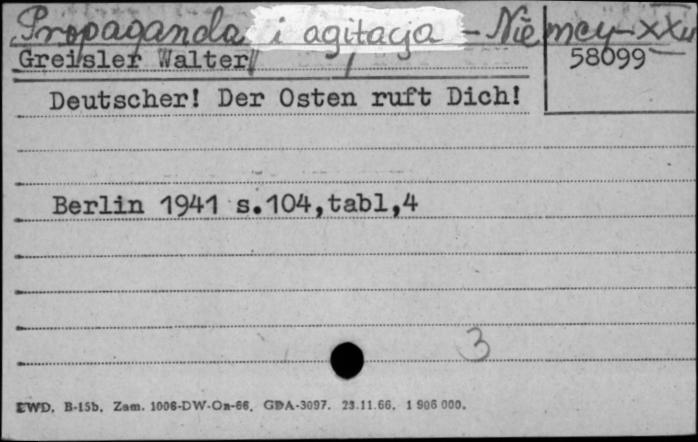 Propaganda i agitacja - Niemcy - XX w
Greisler Walter
58099
Deutscher! Der Osten ruft Dich!
Berlin 1941 s.104,tabl,4
3
EWD. B-15b. Zam. 1006-DW-On-66. GDA-3097. 23.11.66. 1 906 000.